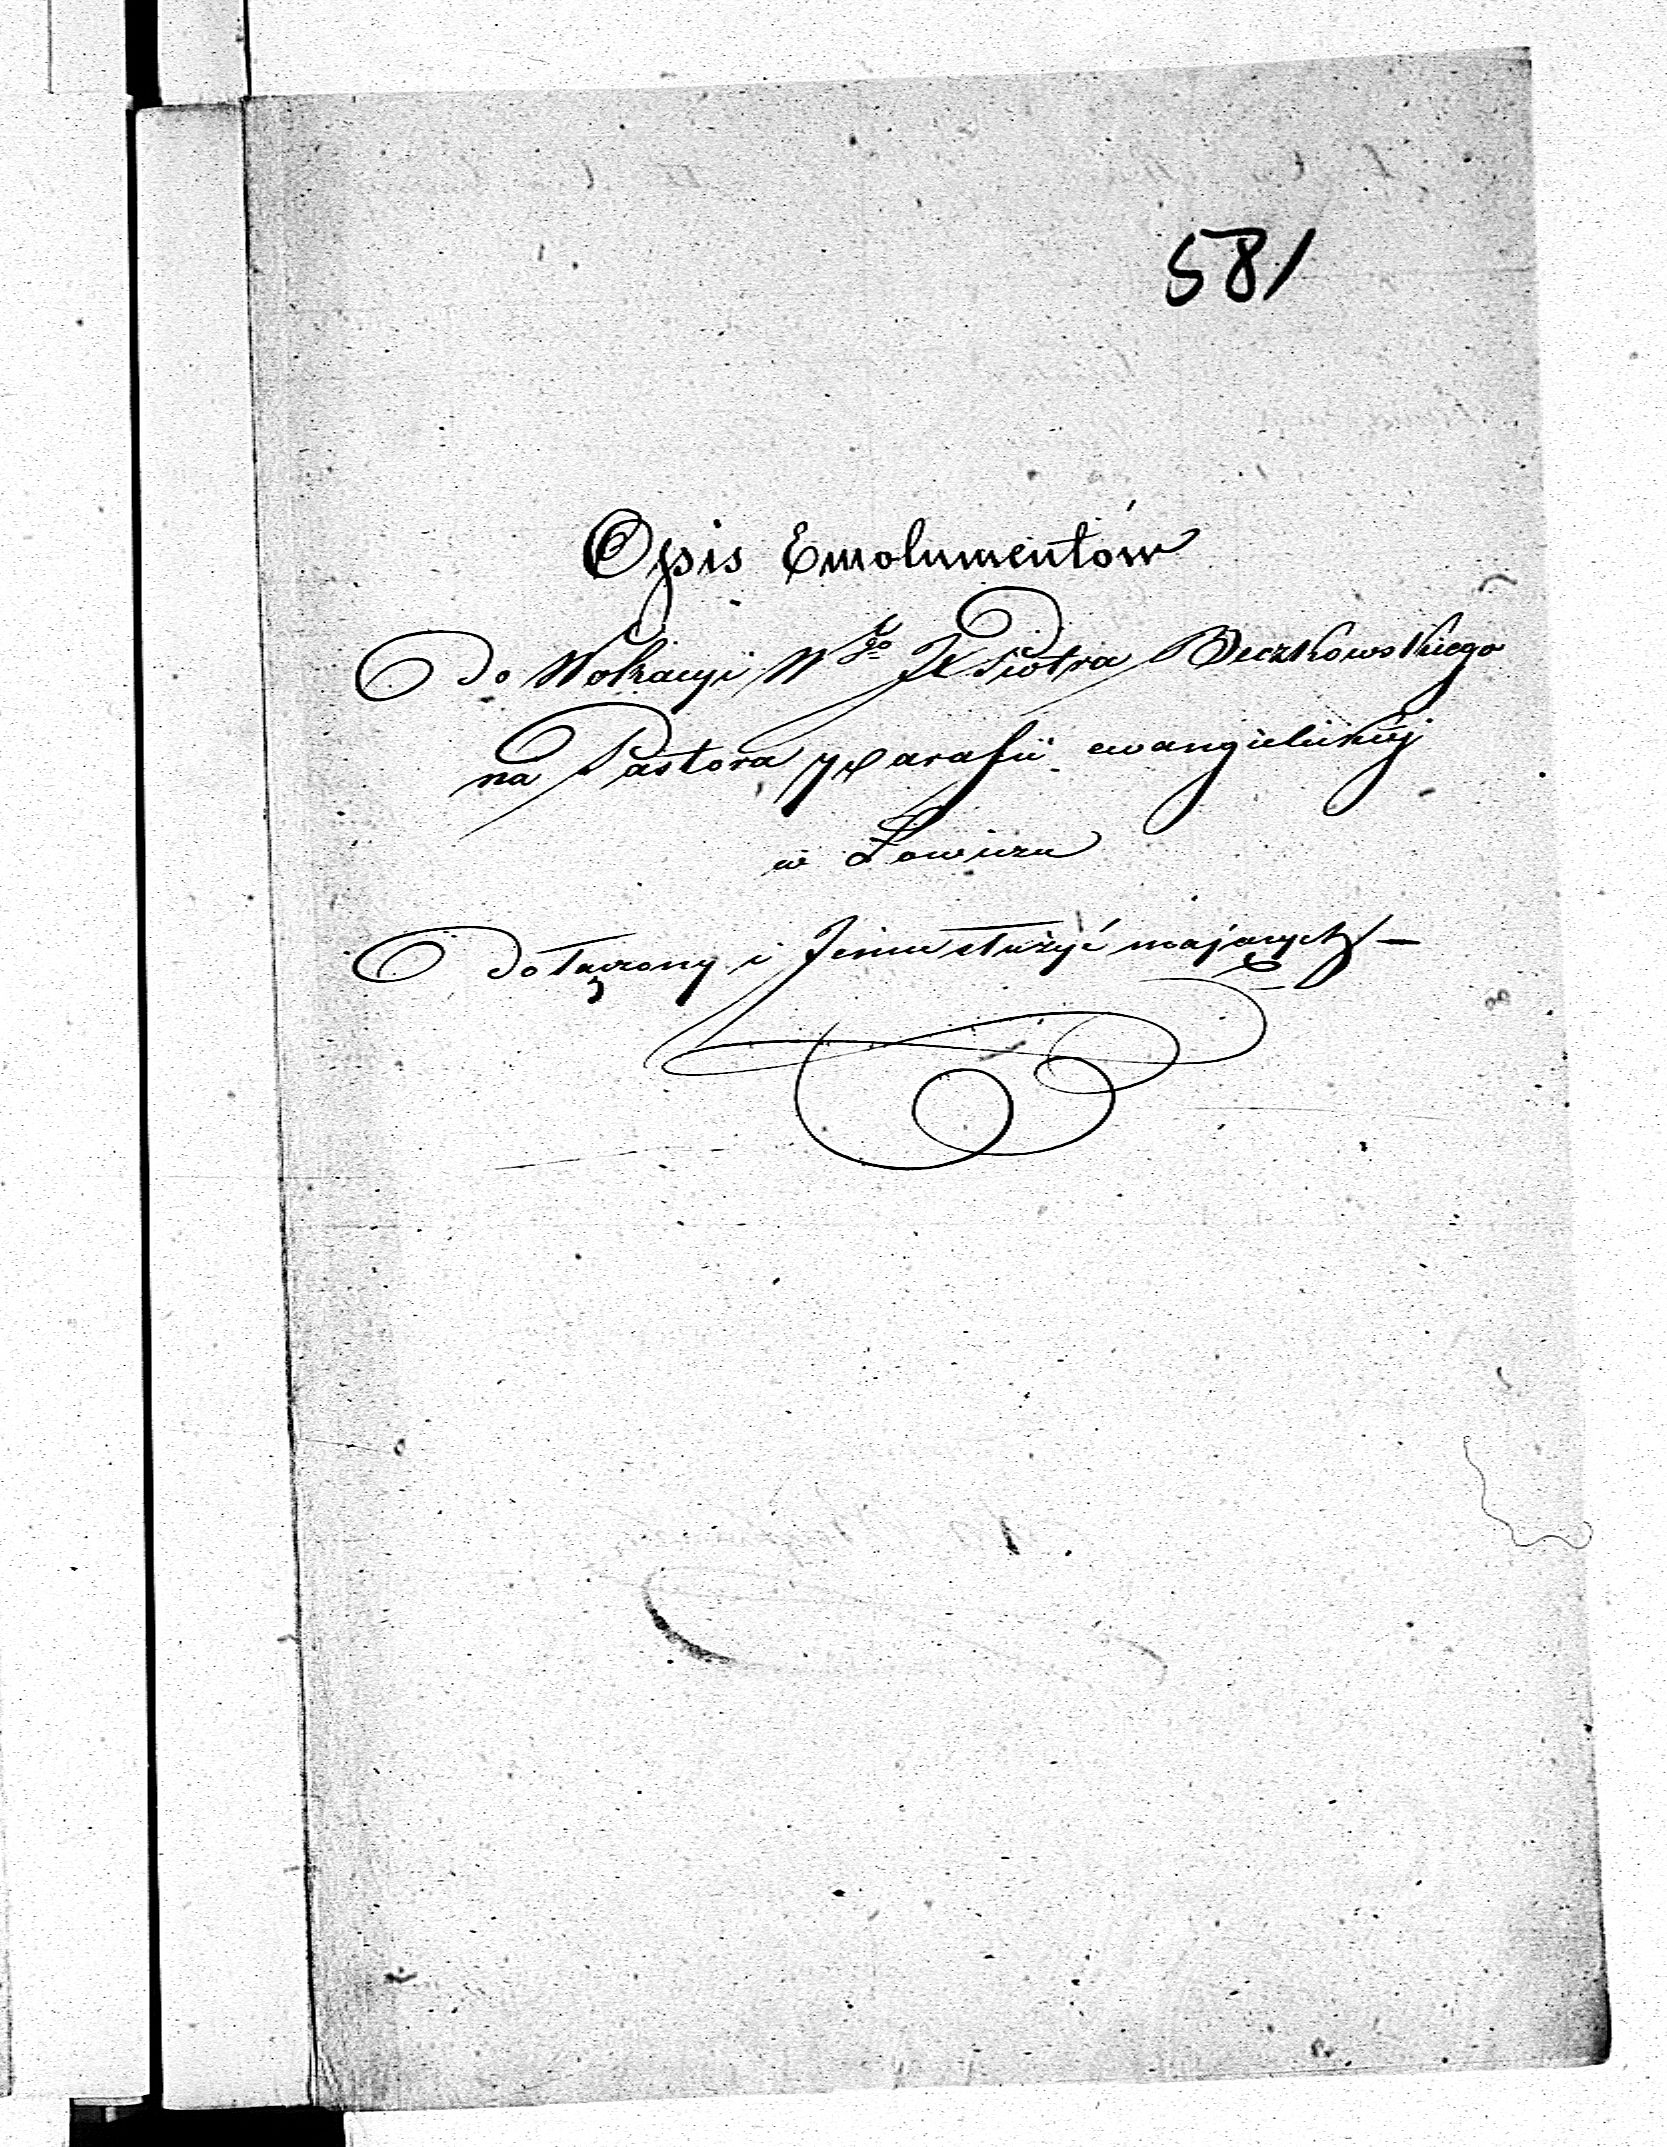 581
Opis Emolumentów
do Wokacyi Wgo JX Piotra Beczkowskiego
na Pastora Parafii ewangielickiéj
w Łowiczu
dołączony i Jemu służyć mających